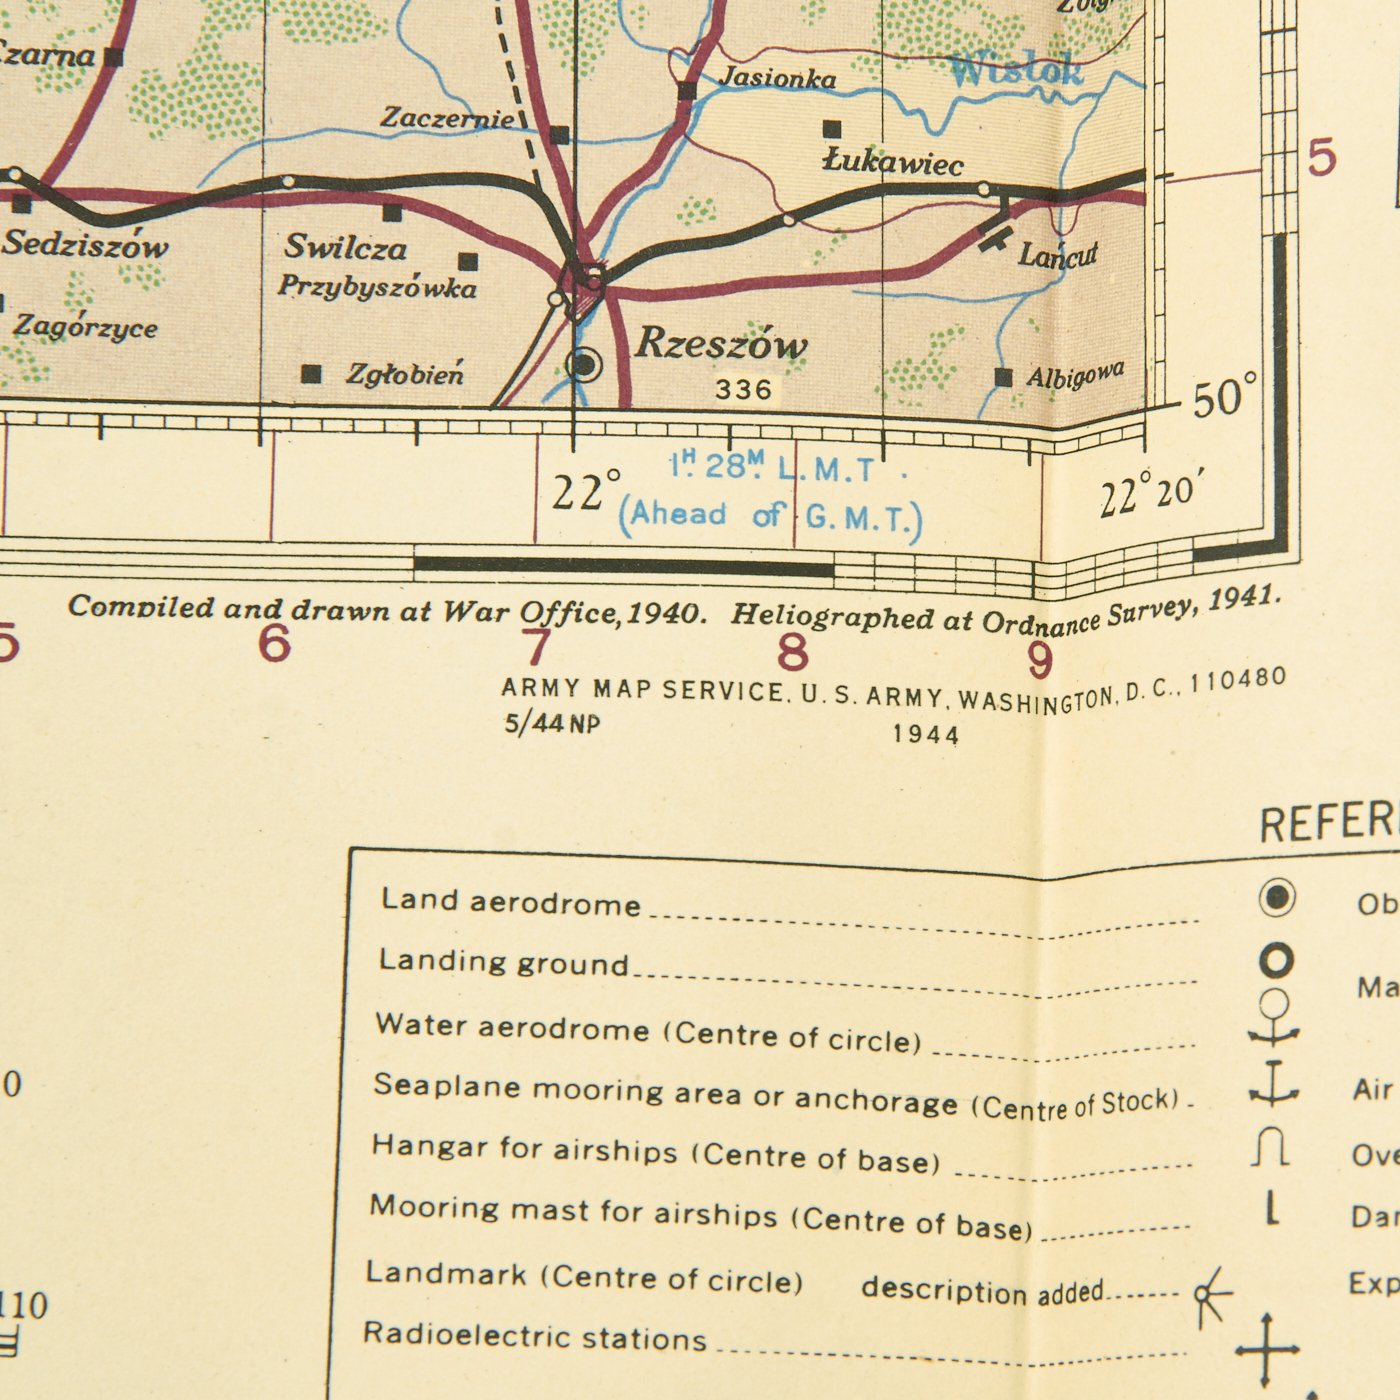 Czarna
Jasionka
Wisłok
Zaczernie
Łukawiec
5
Sedziszów
Swilcza
Łańcut
Przybyszówka
Zagórzyce
Rzeszów
Zgłobień
336
Albigowa
50°
22°
1H. 28M. L.M.T.
(Ahead of G.M.T.)
22°20′
Compiled and drawn at War Office, 1940. Heliographed at Ordnance Survey, 1941.
5 6 7 8 9
ARMY MAP SERVICE, U. S. ARMY, WASHINGTON, D. C., 110480
5/44 NP 1944
REFER
Land aerodrome
Ob
Landing ground
Ma
Water aerodrome (Centre of circle)
Seaplane mooring area or anchorage (Centre of Stock)
Air
0
Hangar for airships (Centre of base)
Ove
Mooring mast for airships (Centre of base)
Dan
Landmark (Centre of circle) description added
Exp
110
Radioelectric stations